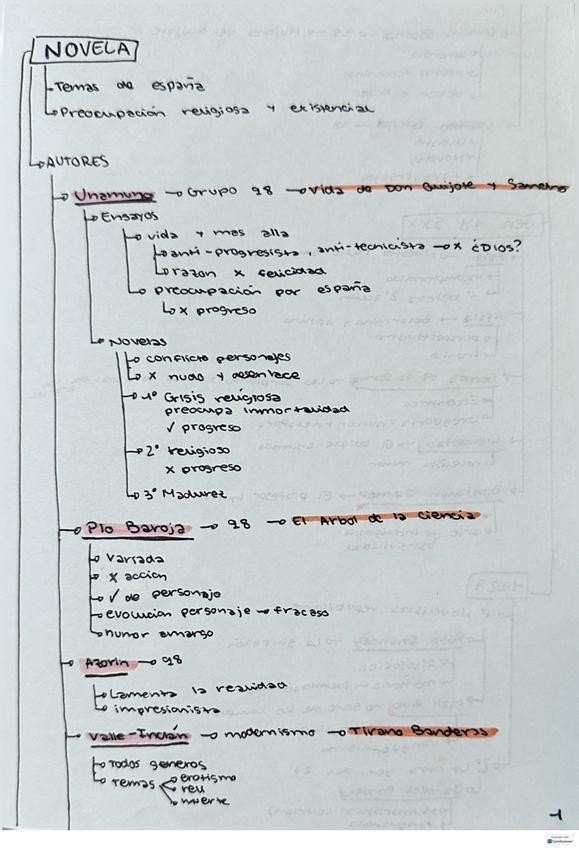 NOVELA
Temas de españa
Preocupación religiosa y existencial
AUTORES
Unamuno → Grupo 98 → Vida de Don Quijote y Sancho
Ensayos
vida y mas alla
anti-progresista, anti-tecnicista → x ¿DIOS?
razon x felicidad
preocupación por españa
x progreso
Novelas
conflicto personajes
x nudo y desenlace
1º Crisis religiosa
preocupa inmortalidad
✓ progreso
2º religioso
x progreso
3º Madurez
Pío Baroja → 98 → El Arbol de la ciencia
variada
x accion
✓ de personaje
evolucion personaje → fracaso
humor amargo
Azorín → 98
Lamenta la realidad
impresionista
Valle-Inclán → modernismo → Tirano Banderas
Todos generos
Temas
erotismo
reli
muerte
1
CamScanner